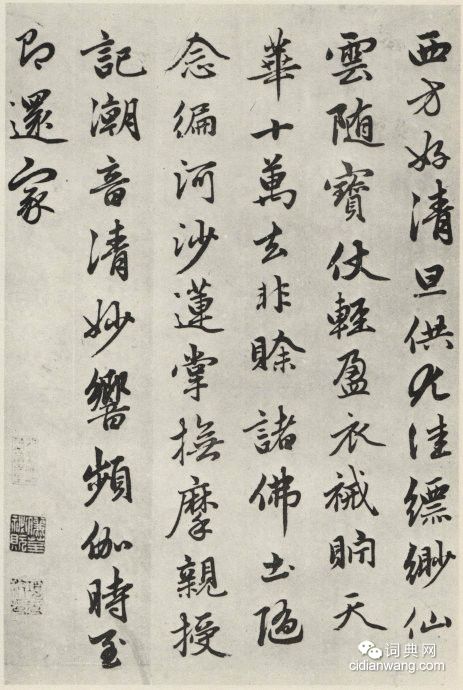 西方好清旦供尤佳縹緲仙
雲随寶仗輕盈衣裓貯天
華十萬去非賒諸佛土随
念徧河沙蓮掌撫摩親授
記潮音清妙響頻伽時至
即還家
词典网
cidianwang.com